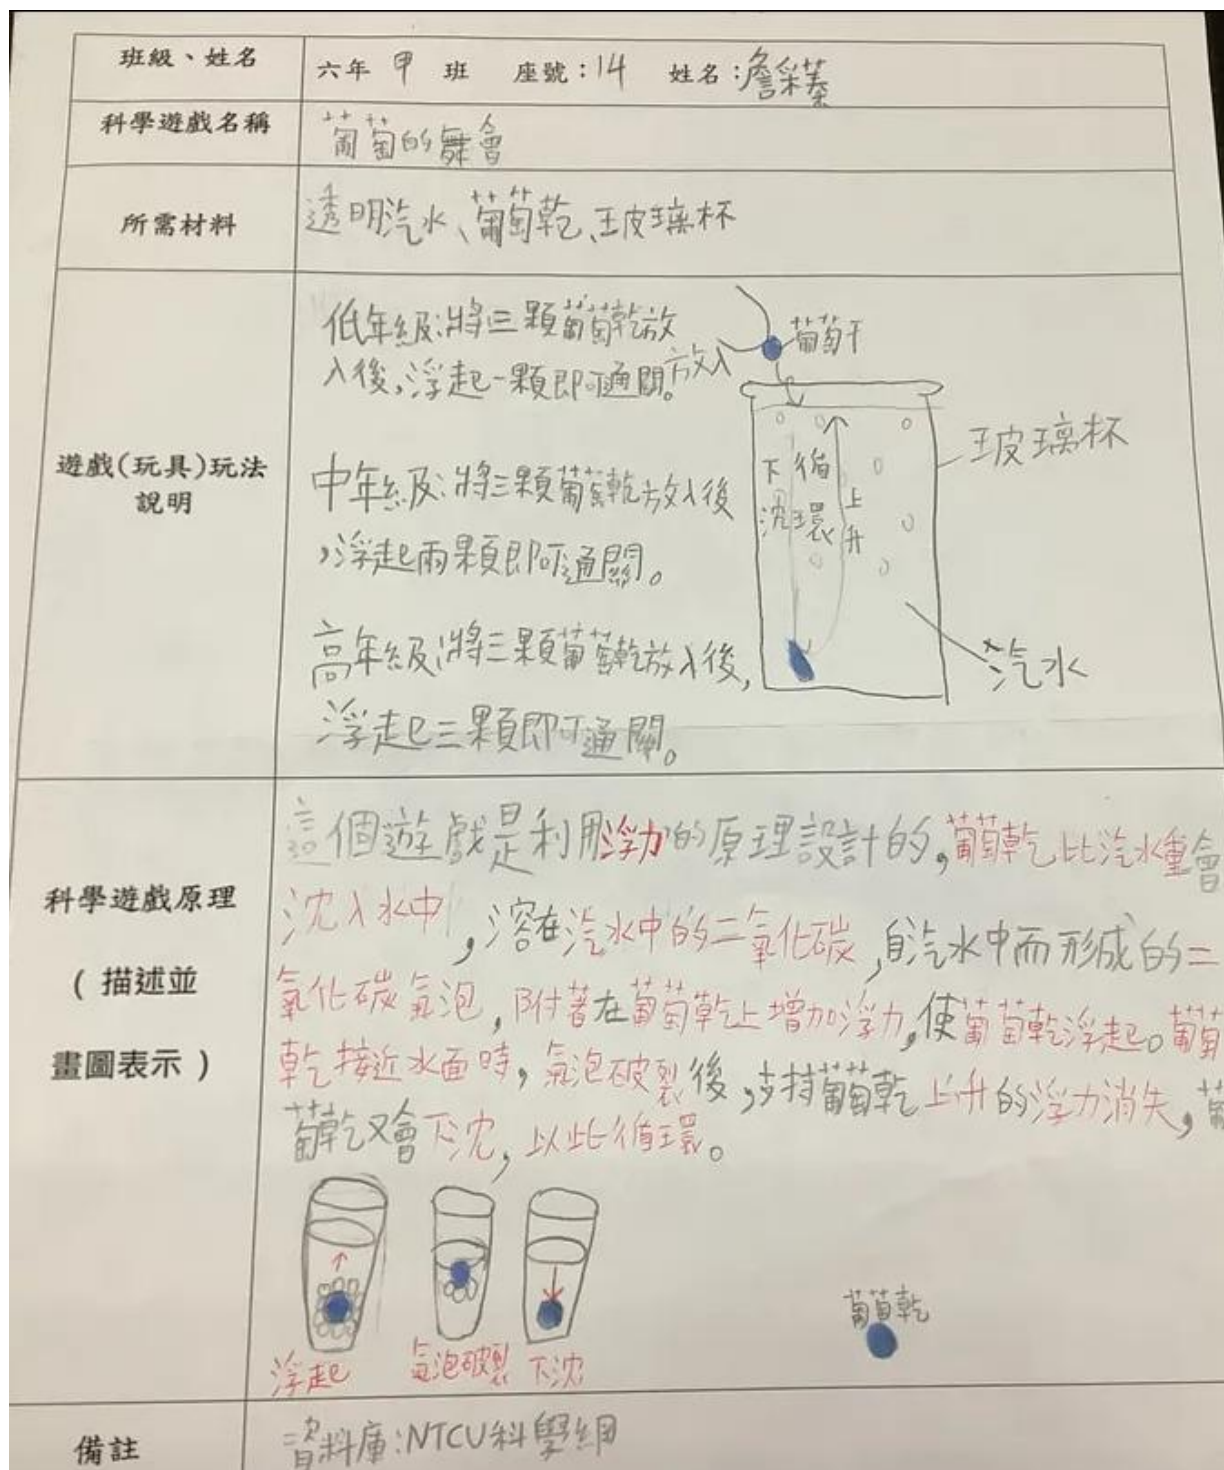 班級、姓名
六年 甲 班 座號：14 姓名：詹采蓁
科學遊戲名稱
葡萄的舞會
所需材料
透明汽水、葡萄乾、玻璃杯
遊戲(玩具)玩法
說明
低年級:將三顆葡萄乾放
入後,浮起一顆即可通關。
中年級:將三顆葡萄乾放入後
,浮起兩顆即可通關。
高年級:將三顆葡萄乾放入後,
浮起三顆即可通關。
放入
葡萄干
玻璃杯
下沈
循環
上升
汽水
科學遊戲原理
( 描述並
畫圖表示 )
這個遊戲是利用浮力的原理設計的,葡萄乾比汽水重會
沈入水中,溶在汽水中的二氧化碳,自汽水中而形成的二
氧化碳氣泡,附著在葡萄乾上增加浮力,使葡萄乾浮起。葡萄
乾接近水面時,氣泡破裂後,支持葡萄乾上升的浮力消失,葡
萄乾又會下沈,以此循環。
浮起
氣泡破裂
下沈
葡萄乾
備註
資料庫:NTCU科學網